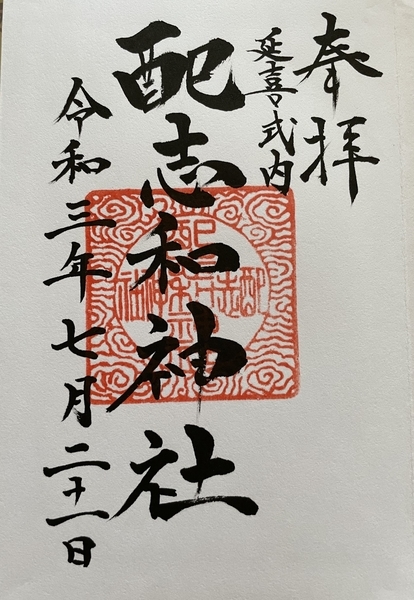 奉拝
延喜式内
配志和神社
令和三年七月二十一日